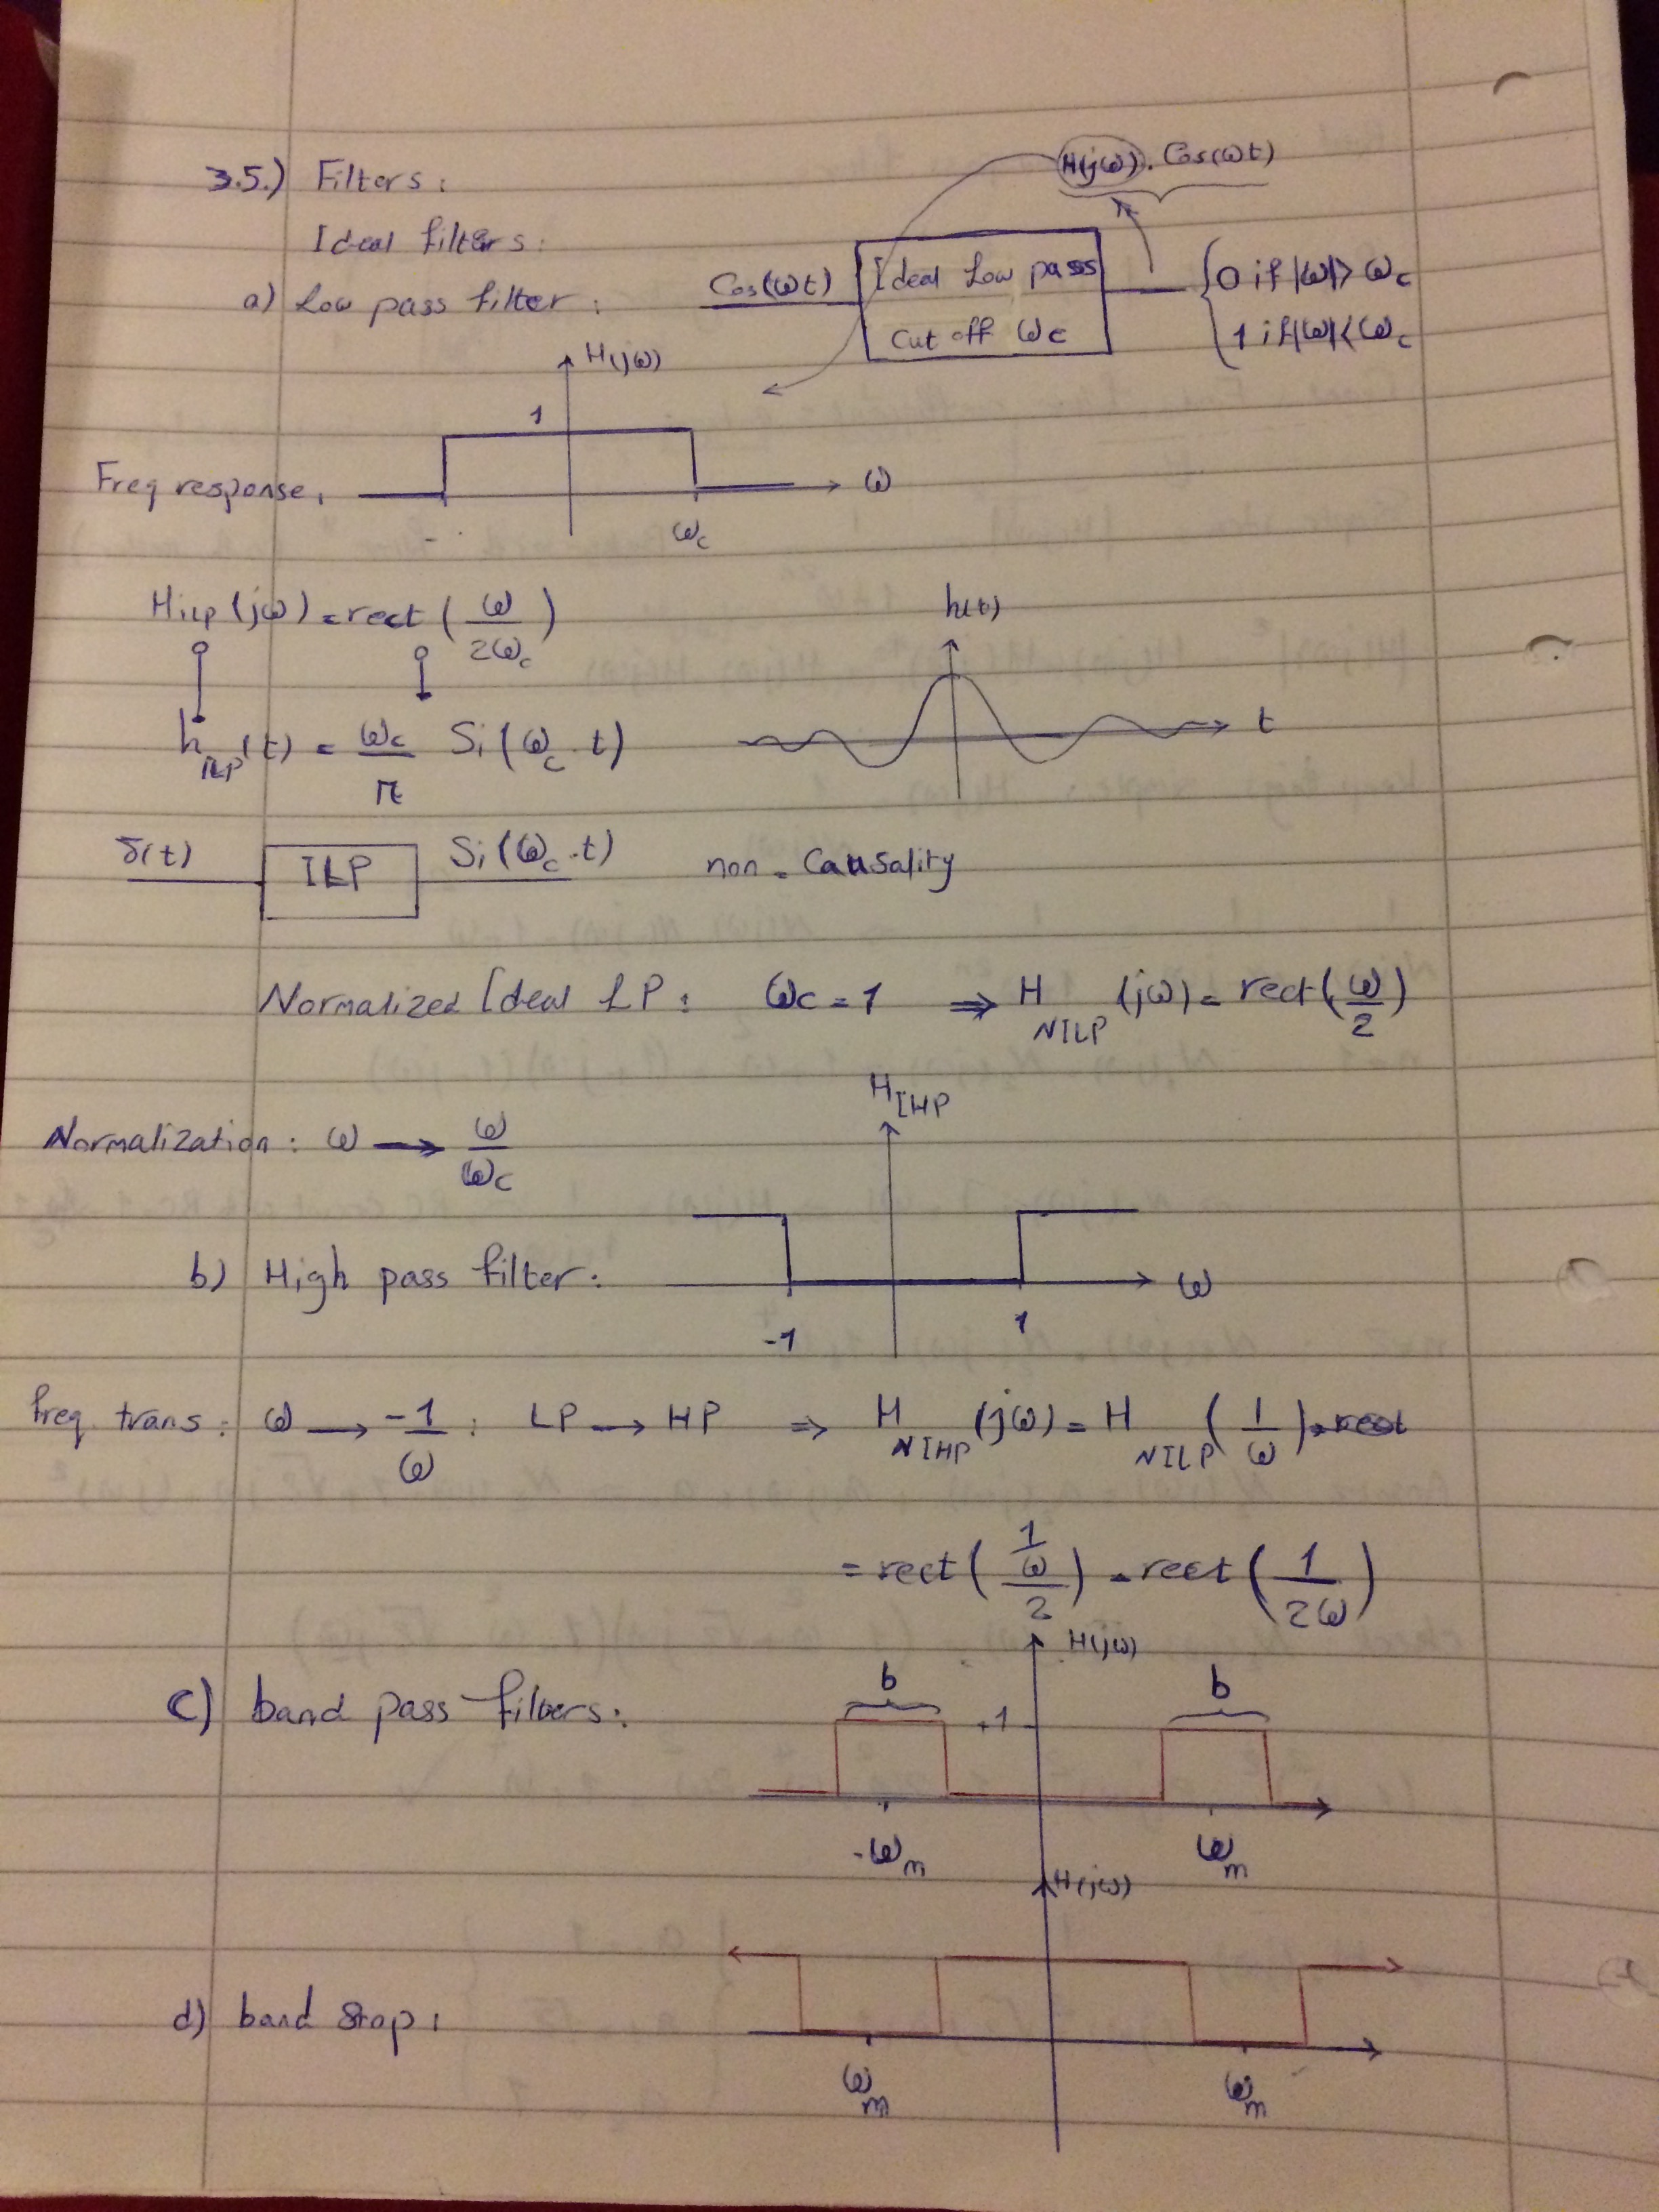 3.5.) Filters:
H(jω). Cos(ωt)
Ideal filters:
a) Low pass filter: Cos(ωt) Ideal Low pass Cut off ωc {0 if |ω|> ωc
1 if |ω|< ωc
H(jω)
1
Freq response: ω
- ωc
H_ILP (jω) = rect (ω/2ωc)
h(t)
h_ILP (t) = ωc/π Si(ωc · t) t
δ(t) ILP Si(ωc·t) non-Causality
Normalized Ideal LP: ωc = 1 ⇒ H_NILP (jω) = rect(ω/2)
H_IHP
Normalization: ω → ω/ωc
b) High pass filter: ω
-1 1
freq trans: ω → -1/ω : LP → HP ⇒ H_NIHP (jω) = H_NILP (1/ω)
= rect((1/ω)/2) = rect(1/2ω)
H(jω)
b b
c) band pass filters: +1
-ωm ωm
H(jω)
d) band stop:
ωm ωm